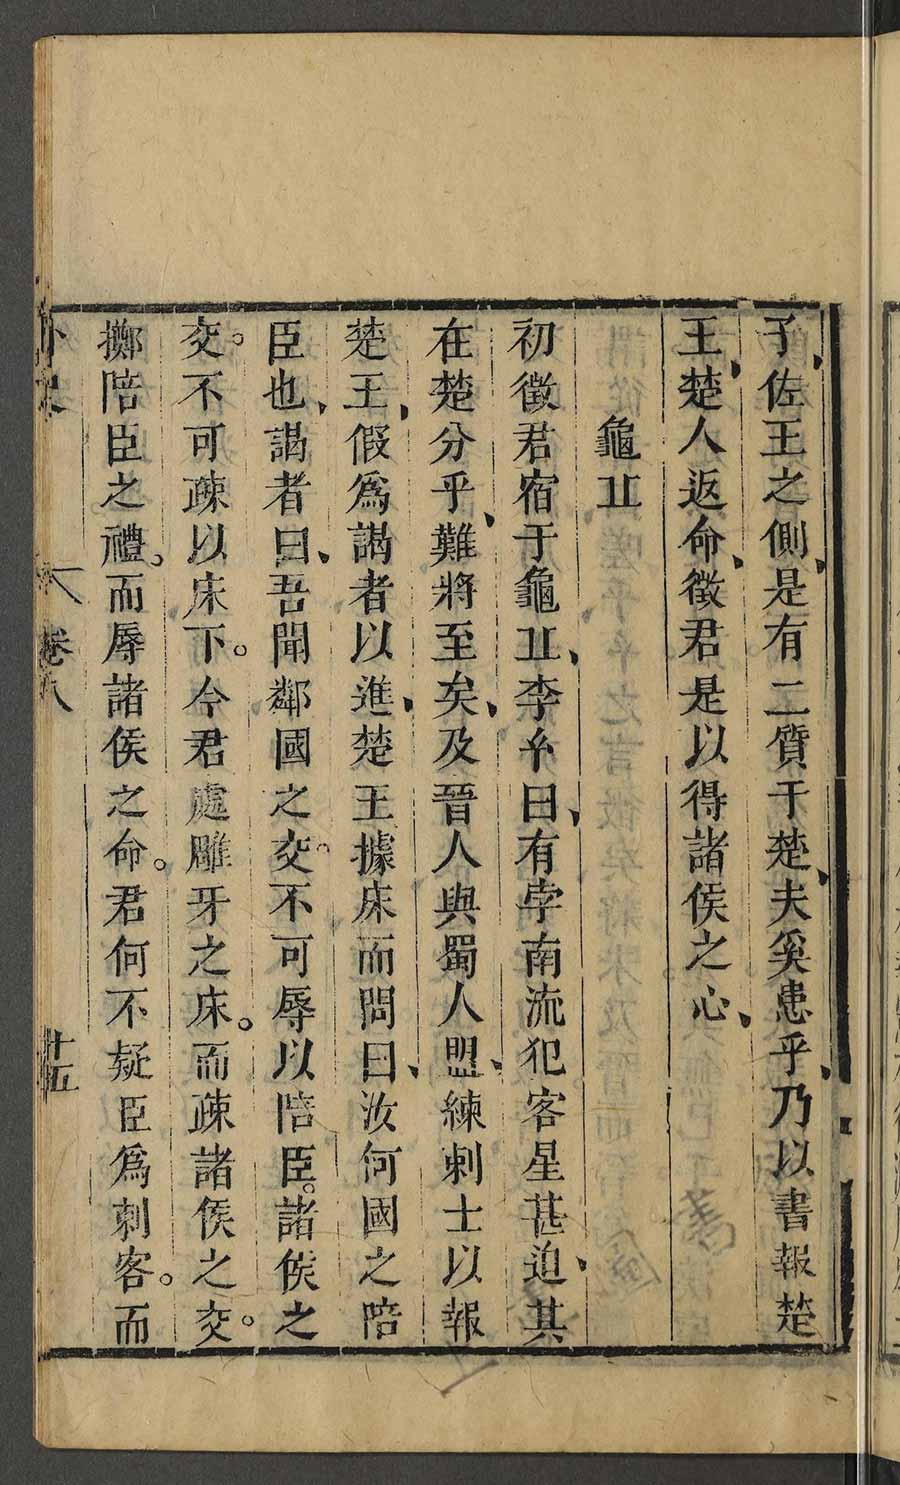 子、佐王之側、是有二質于楚、夫奚患乎、乃以書報楚
王、楚人返命、徵君是以得諸侯之心、
龜㐀
初徵君宿于龜㐀、李㣺曰、有孛南流犯客星甚迫、其
在楚分乎、難將至矣、及晉人與蜀人盟、練刺士以報
楚王、假爲謁者以進、楚王據床而問曰、汝何國之陪
臣也、謁者曰、吾聞鄰國之交。不可辱以陪臣。諸侯之
交。不可疎以床下。今君處雕牙之床。而疎諸侯之交。
擲陪臣之禮。而辱諸侯之命。君何不疑臣爲刺客。而
卷八
十五